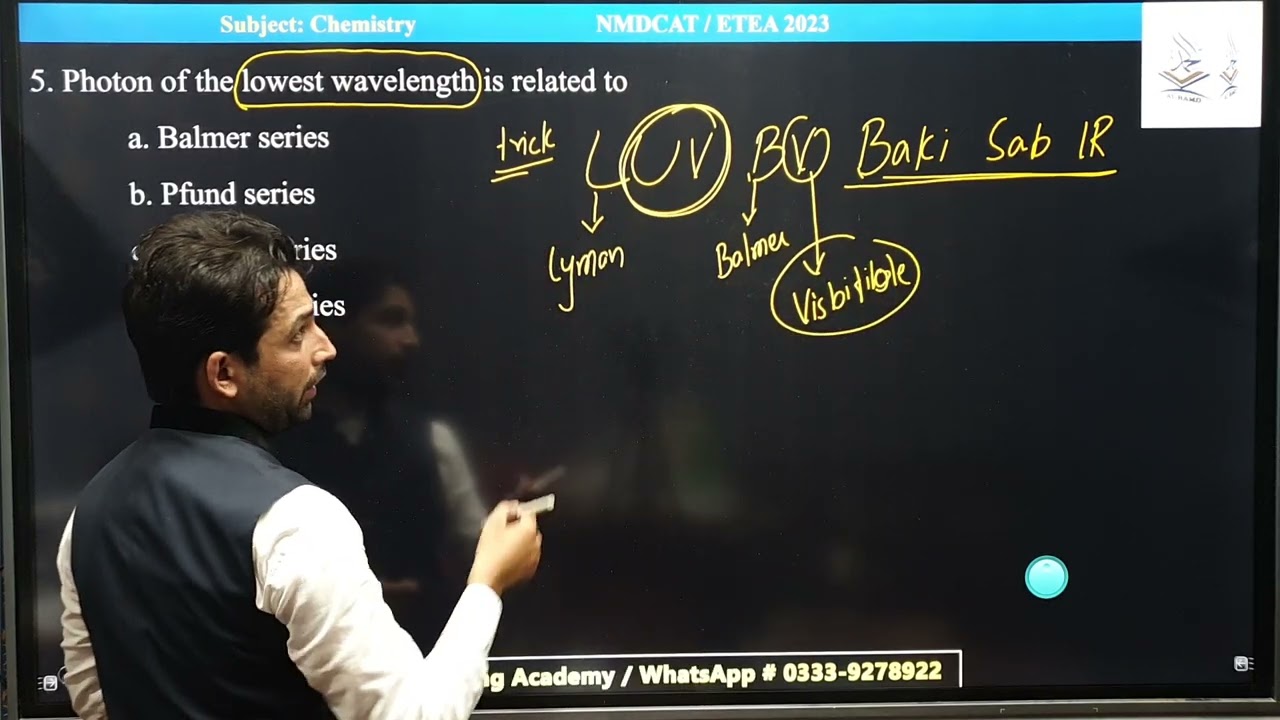 Subject: Chemistry
NMDCAT / ETEA 2023
5. Photon of the lowest wavelength is related to
a. Balmer series
b. Pfund series
ries
ies
trick L UV B V Baki Sab IR
Lyman
Balmer
Visbitilble
ng Academy / WhatsApp # 0333-9278922